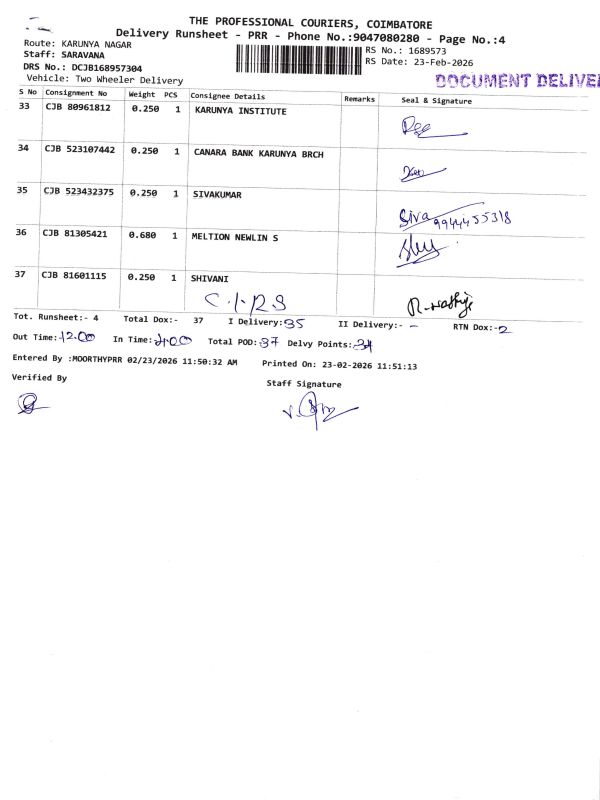 THE PROFESSIONAL COURIERS, COIMBATORE
Delivery Runsheet - PRR - Phone No.:9047080280 - Page No.:4
Route: KARUNYA NAGAR
RS No.: 1689573
Staff: SARAVANA
RS Date: 23-Feb-2026
DRS No.: DCJB168957304
Vehicle: Two Wheeler Delivery
DOCUMENT DELIVE
S No Consignment No Weight PCS Consignee Details Remarks Seal & Signature
33 CJB 80961812 0.250 1 KARUNYA INSTITUTE
34 CJB 523107442 0.250 1 CANARA BANK KARUNYA BRCH
35 CJB 523432375 0.250 1 SIVAKUMAR
Siva 9944455318
36 CJB 81305421 0.680 1 MELTION NEWLIN S
37 CJB 81601115 0.250 1 SHIVANI
Tot. Runsheet:- 4 Total Dox:- 37 I Delivery:35 II Delivery:- - RTN Dox:-2
Out Time:12.00 In Time: Total POD:37 Delvy Points:34
Entered By :MOORTHYPRR 02/23/2026 11:50:32 AM Printed On: 23-02-2026 11:51:13
Verified By
Staff Signature